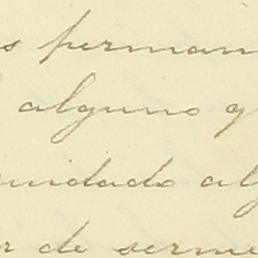 s perman
alguno q
unidado alg
r de serme